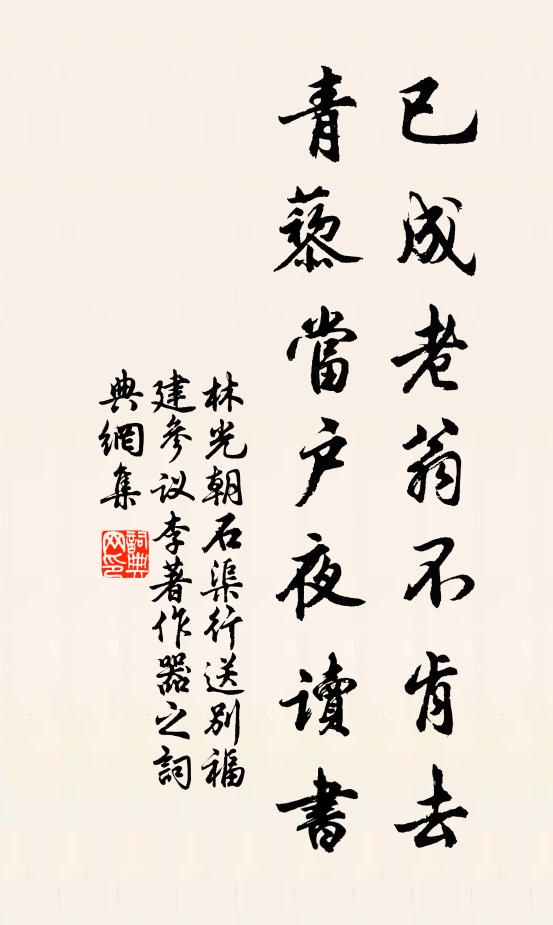 已成老翁不肯去
青藜當户夜讀書
林光朝石渠行送别福
建參议李著作器之詞
典網集
詞典网印